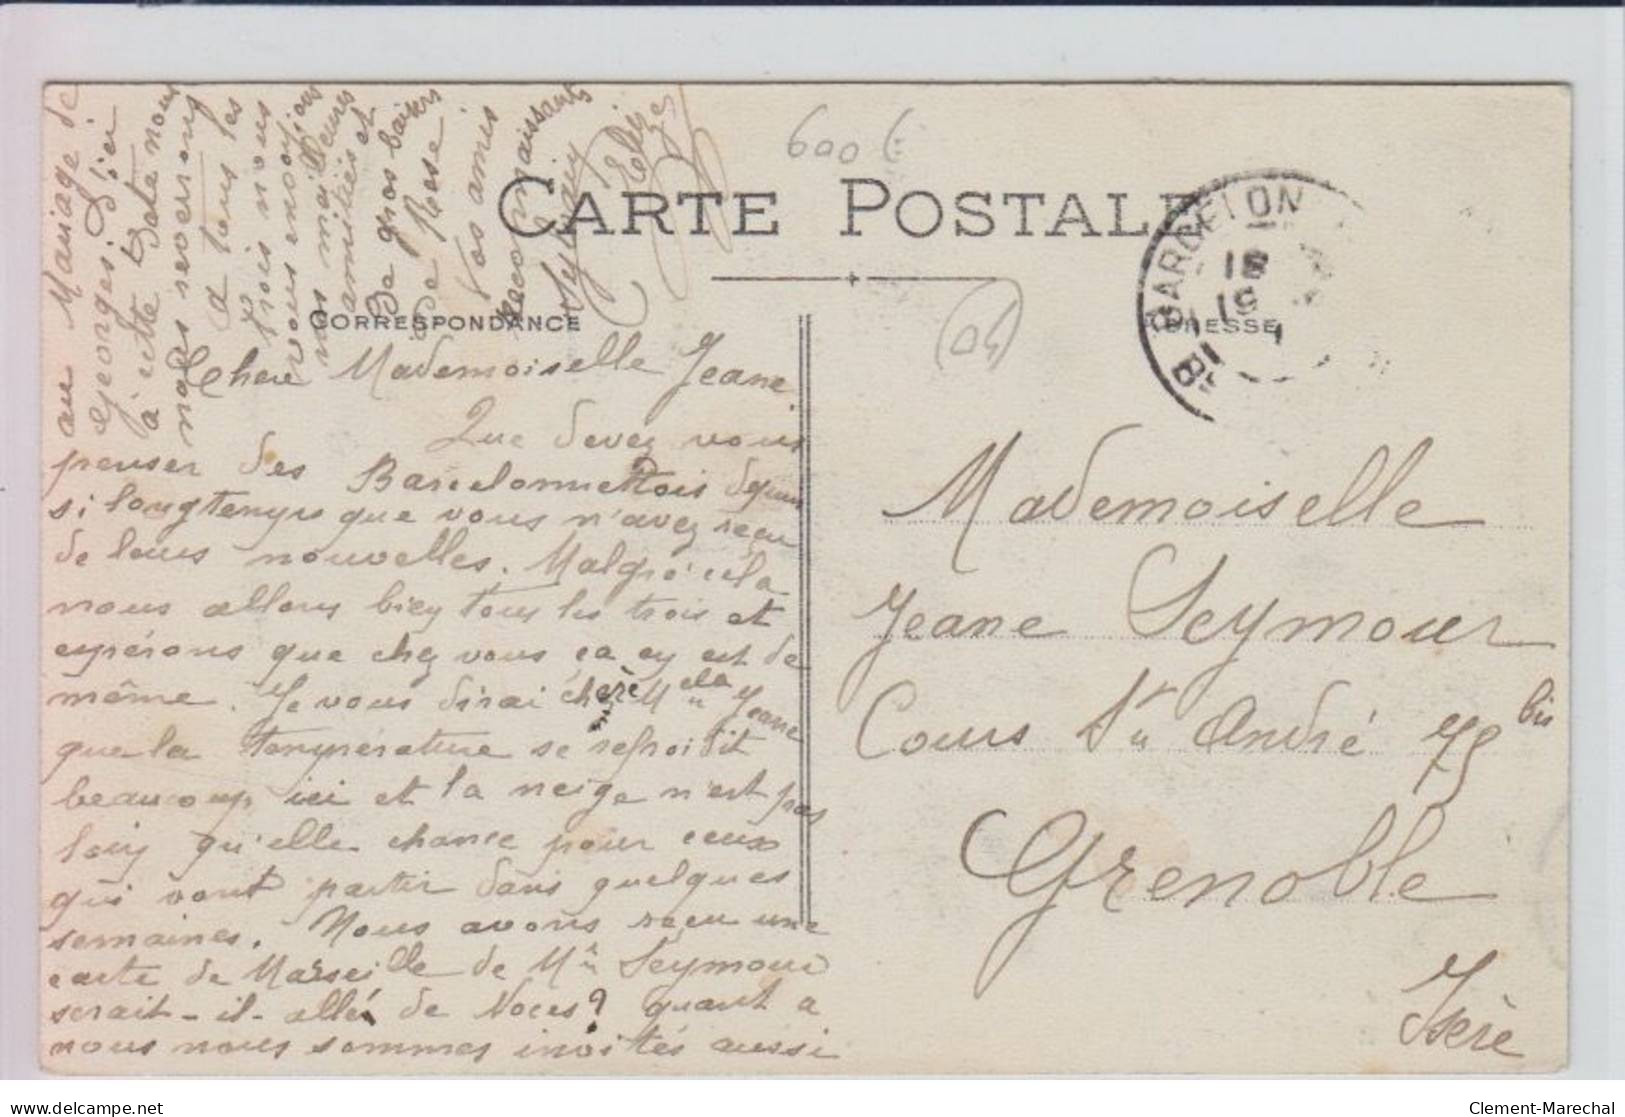 600 €
CARTE POSTALE
CORRESPONDANCE
ADRESSE
BARCELON
18
04
Chere Mademoiselle Jeane.
Que devez vous
penser des Barcelonnettois depuis
si longtemps que vous n'avez reçu
de leurs nouvelles. Malgré cela
nous allons bien tous les trois et
espérons que chez vous ça en est de
même. Je vous dirai chère Melle Jeane
que la température se refroidit
beaucoup ici et la neige n'est pas
loin qu'elle chance pour ceux
qui vont partir dans quelques
semaines. Nous avons reçu une
carte de Marseille de Mr Seymour
serait-il-allé de Noces? quant a
nous nous sommes invités aussi
au Mariage de
Georges
à cette Date nous
nous reverrons
a tous les
trois nous
vous envoyons
nos meilleures
amitiés et
De gros baisers
De Rose
Vos amis
reconnaissants
Mademoiselle
Jeane Seymour
Cours St André 75 bis
Grenoble
Isère
delcampe.net
Clement-Marechal